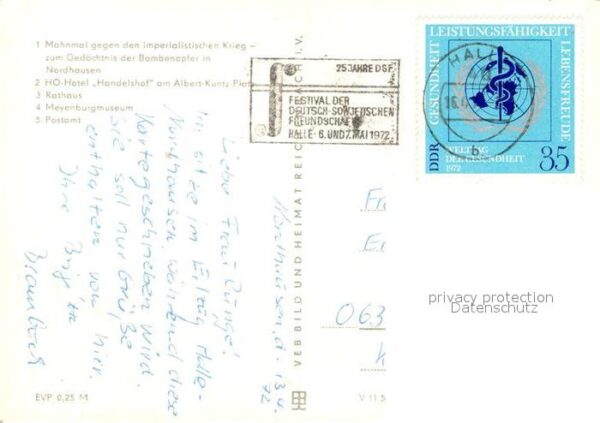 1 Mahnmal gegen den imperialistischen Krieg –
zum Gedächtnis der Bombenopfer in
Nordhausen
2 HO-Hotel „Handelshof" am Albert-Kuntz-Pla
3 Rathaus
4 Meyenburgmuseum
5 Postamt
25 JAHRE DSF
FESTIVAL DER
DEUTSCH-SOWJETISCHEN
FREUNDSCHAFT
HALLE · 6. UND 7. MAI 1972
GESUNDHEIT LEISTUNGSFÄHIGKEIT LEBENSFREUDE
DDR
WELTTAG
DER GESUNDHEIT
1972
35
HALLE
Nordhausen, d. 13.4.
72
Liebe Frau Runge!
sitze im Eilzug Halle-
Nordhausen, während diese
Karte geschrieben wird.
Sie soll nur Grüße
enthalten von hier.
Ihre
VEB BILD UND HEIMAT REIC
Fr
063
privacy protection
Datenschutz
EVP 0,25 M
V 11 5